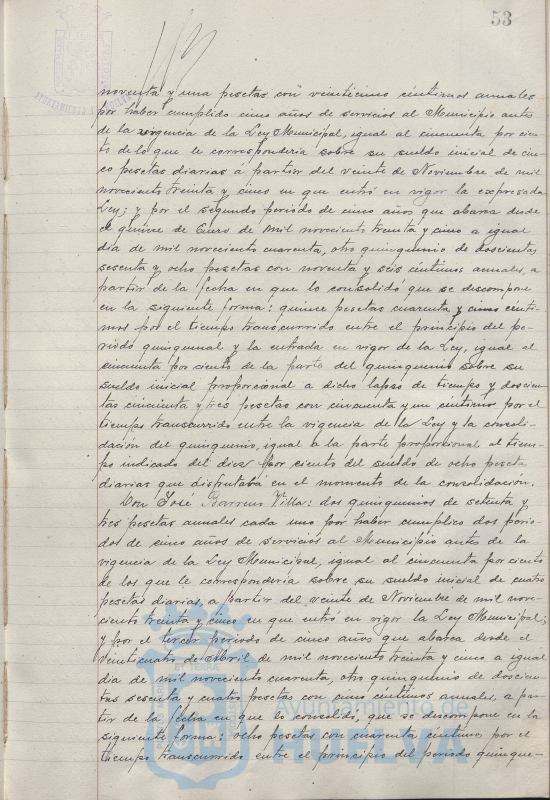 53
noventa y una pesetas con veinticinco céntimos anuales
por haber cumplido cinco años de servicios al Municipio antes
de la vigencia de la Ley Municipal, igual al cincuenta por cien-
to de lo que le correspondería sobre su sueldo inicial de cin-
co pesetas diarias a partir del veinte de Noviembre de mil
novecientos treinta y cinco en que entró en vigor la expresada
Ley; y por el segundo periodo de cinco años que abarca desde
el quince de Enero de mil novecientos treinta y cinco a igual
dia de mil novecientos cuarenta, otro quinquenio de doscientas
sesenta y ocho pesetas con noventa y seis céntimos anuales, a
partir de la fecha en que lo consolidó que se descompone
en la siguiente forma: quince pesetas cuarenta y cinco cénti-
mos por el tiempo transcurrido entre el principio del pe-
riodo quinquenal y la entrada en vigor de la Ley, igual al
cincuenta por ciento de la parte del quinquenio sobre su
sueldo inicial proporcional a dicho lapso de tiempo y doscien-
tas cincuenta y tres pesetas con cincuenta y un céntimo por el
tiempo transcurrido entre la vigencia de la Ley y la consoli-
dación del quinquenio, igual a la parte proporcional al tiem-
po indicado del diez por ciento del sueldo de ocho pesetas
diarias que disfrutaba en el momento de la consolidación.
Don José Barrero Villa: dos quinquenios de setenta y
tres pesetas anuales cada uno por haber cumplido dos perio-
dos de cinco años de servicios al Municipio antes de la
vigencia de la Ley Municipal, igual al cincuenta por ciento
de los que le correspondería sobre su sueldo inicial de cuatro
pesetas diarias, a partir del veinte de Noviembre de mil nove-
ciento treinta y cinco en que entró en vigor la Ley Municipal;
y por el tercer periodo de cinco años que abarca desde el
veinticuatro de Abril de mil novecientos treinta y cinco a igual
dia de mil novecientos cuarenta, otro quinquenio de doscien-
tas sesenta y cuatro pesetas con cinco céntimos anuales, a par-
tir de la fecha en que lo consolidó, que se descompone en la
siguiente forma: ocho pesetas con cuarenta céntimos por el
tiempo transcurrido entre el principio del periodo quinque-
Ayuntamiento de